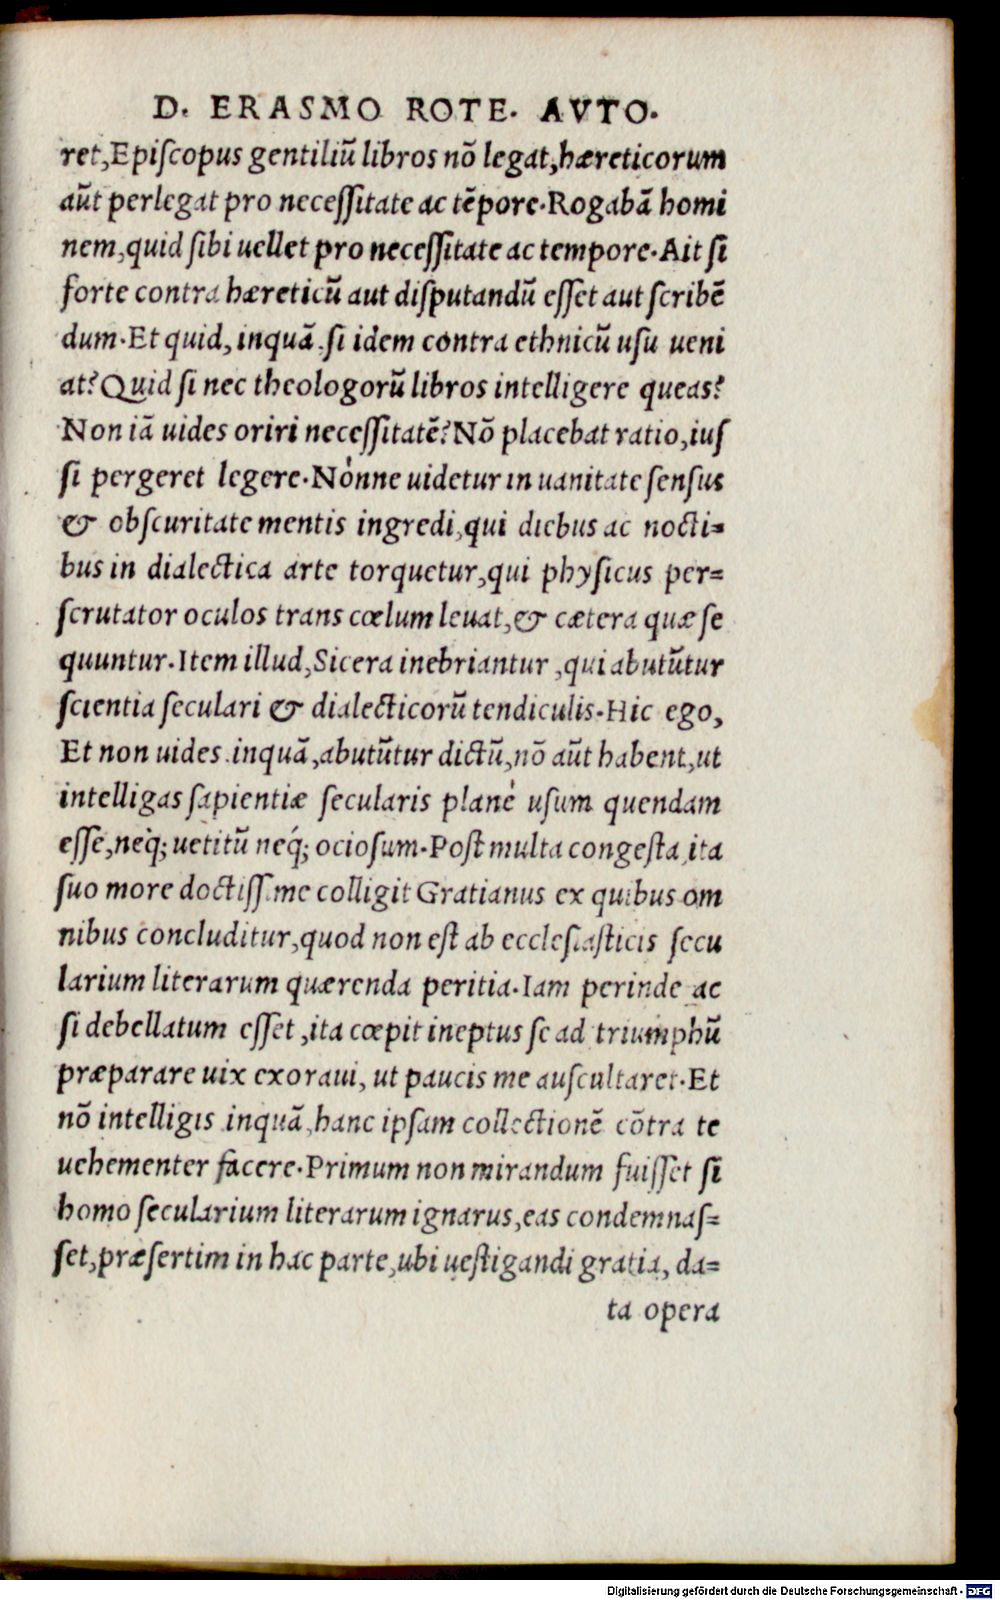 D. ERASMO ROTE. AVTO.
ret,Epiſcopus gentiliũ libros nõ legat,hæreticorum
aũt perlegat pro neceſſitate ac tẽpore.Rogabã homi
nem,quid ſibi uellet pro neceſſitate ac tempore.Ait ſi
forte contra hæreticũ aut diſputandũ eſſet aut ſcribẽ
dum.Et quid, inquã,ſi idem contra ethnicũ uſu ueni
at?Quid ſi nec theologorũ libros intelligere queas?
Non iã uides oriri neceſſitatẽ?Nõ placebat ratio,iuſ
ſi pergeret legere.Nónne uidetur in uanitate ſenſus
& obſcuritate mentis ingredi,qui diebus ac nocti=
bus in dialectica arte torquetur,qui phyſicus per=
ſcrutator oculos trans cœlum leuat,& cætera quæ ſe
quuntur.Item illud,Sicera inebriantur ,qui abutũtur
ſcientia ſeculari & dialecticorũ tendiculis.Hic ego,
Et non uides inquã,abutũtur dictũ,nõ aũt habent,ut
intelligas ſapientiæ ſecularis planè uſum quendam
eſſe,neq́; uetitũ neq́; ocioſum.Poſt multa congeſta,ita
ſuo more doctiſſime colligit Gratianus ex quibus om
nibus concluditur,quod non eſt ab eccleſiaſticis ſecu
larium literarum quærenda peritia.Iam perinde ac
ſi debellatum eſſet ,ita cœpit ineptus ſe ad triumphũ
præparare uix exoraui, ut paucis me auſcultaret.Et
nõ intelligis inquã,hanc ipſam collectionẽ cõtra te
uehementer facere.Primum non mirandum fuiſſet ſi
homo ſecularium literarum ignarus,eas condemnaſ=
ſet,præſertim in hac parte,ubi ueſtigandi gratia, da=
ta opera
Digitalisierung gefördert durch die Deutsche Forschungsgemeinschaft - DFG